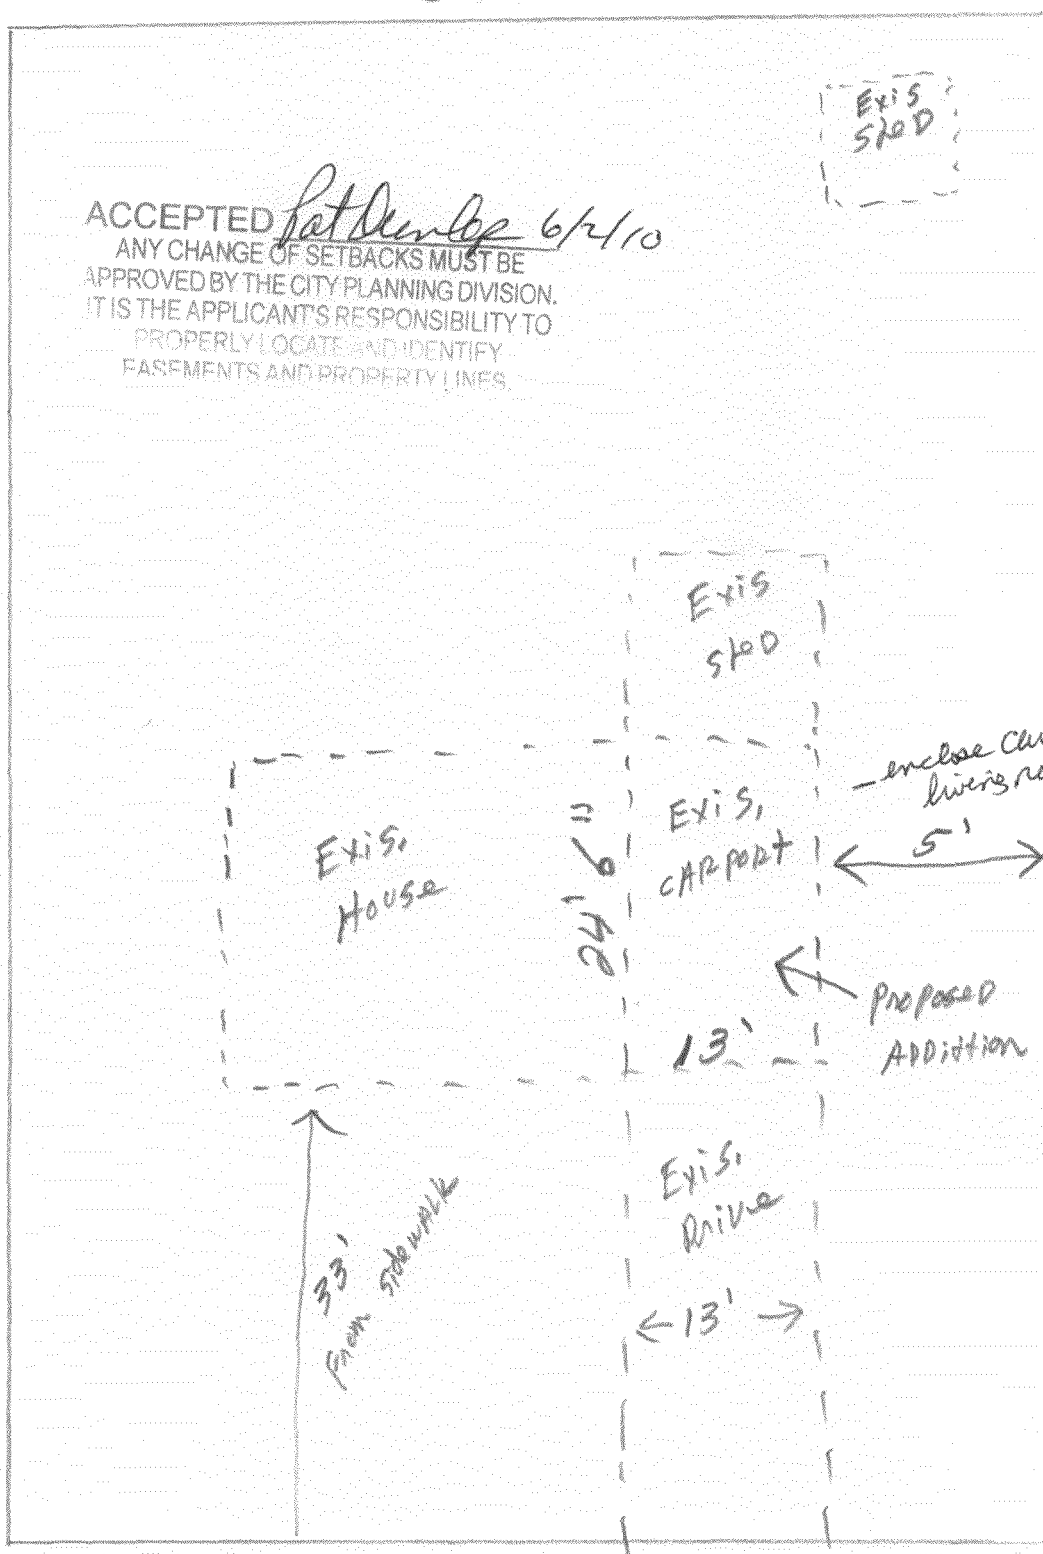 Exis
SheD
ACCEPTED Pat Dunlop 6/2/10
ANY CHANGE OF SETBACKS MUST BE
APPROVED BY THE CITY PLANNING DIVISION.
IT IS THE APPLICANT'S RESPONSIBILITY TO
PROPERLY LOCATE AND IDENTIFY
EASEMENTS AND PROPERTY LINES.
Exis
SheD
enclose
living
5'
Exis.
CARPORT
Exis.
House
24' 6"
Proposed
ADDittion
13'
Exis.
Drive
33'
From SidewALK
13'